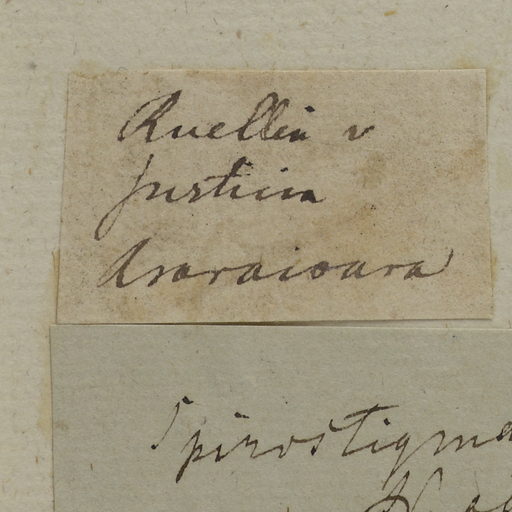 Ruellia v
Justicia
Araraioara
Spirostigma